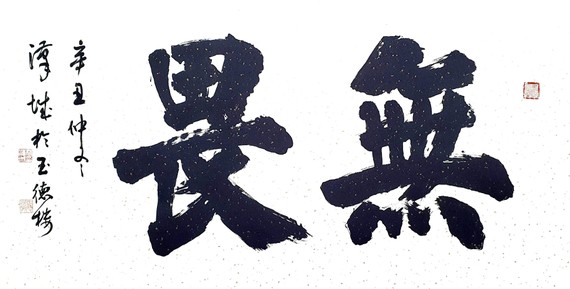 無畏
辛丑仲冬
漢城於玉德樓